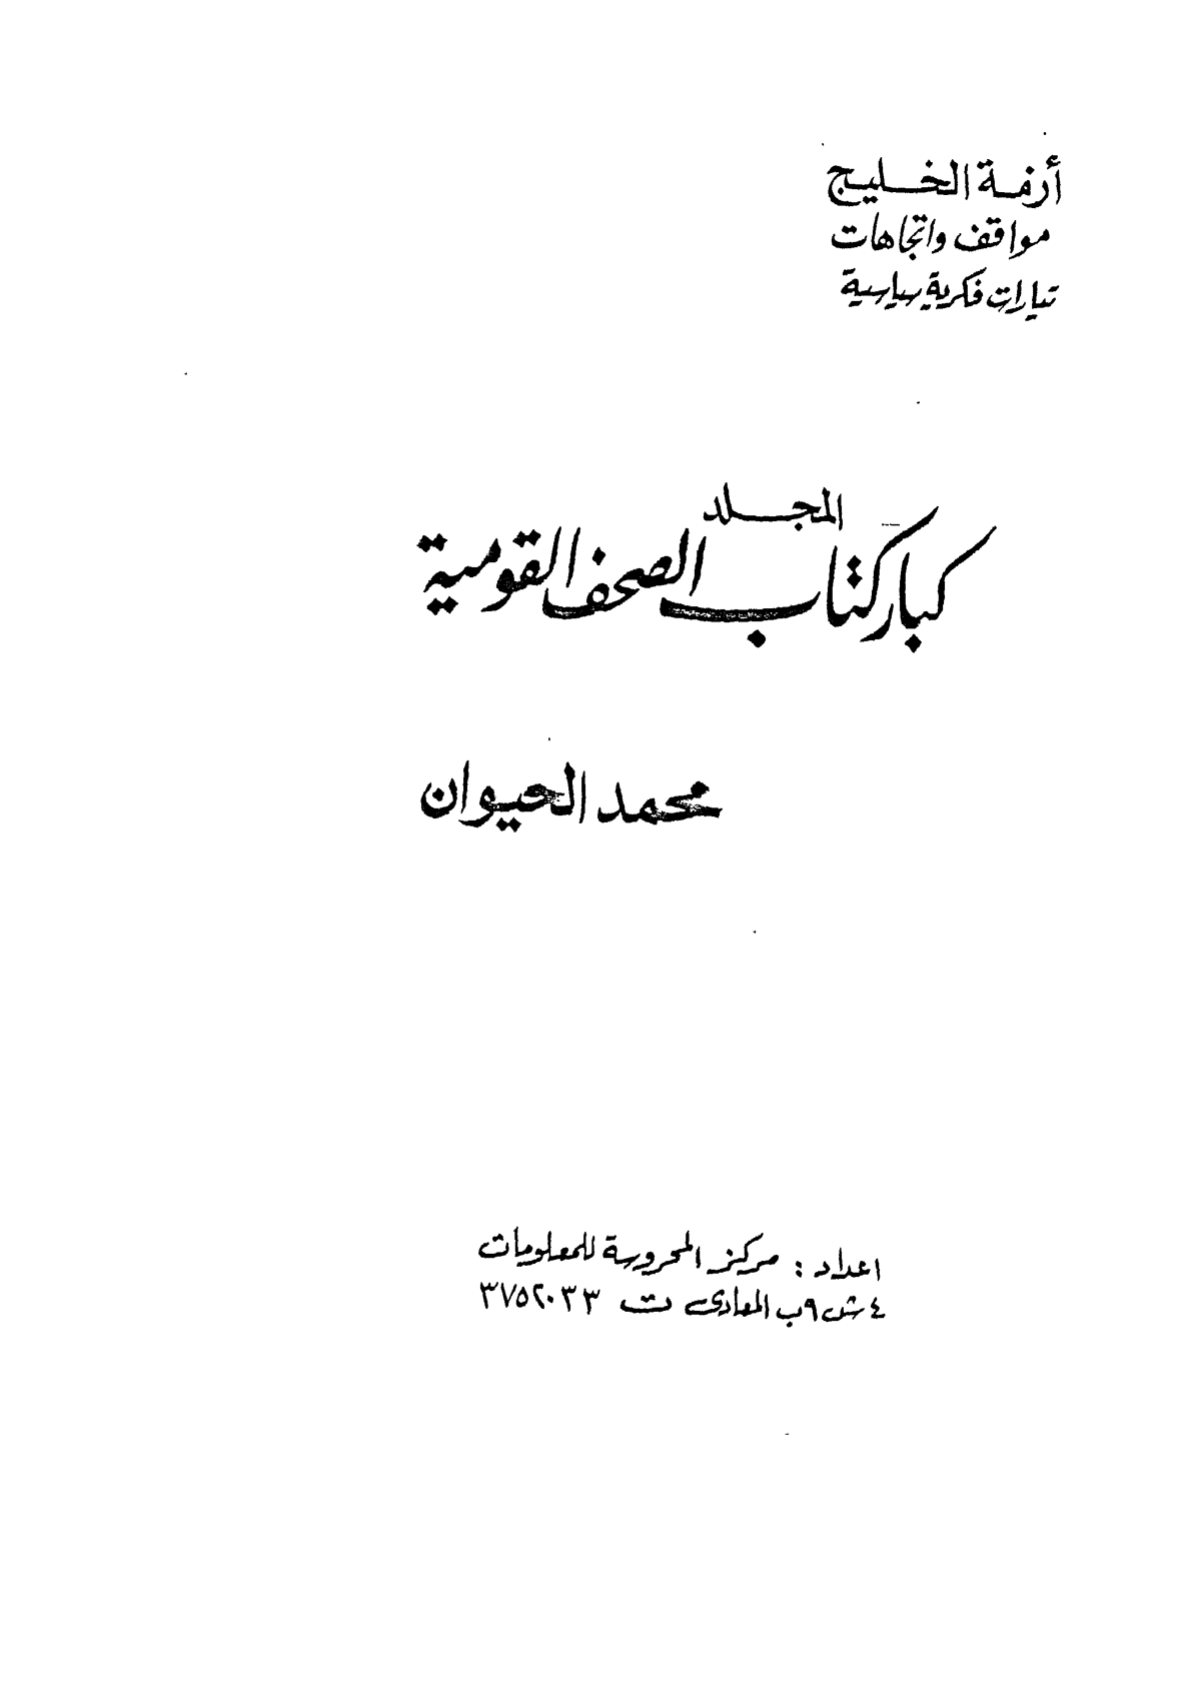 أزمة الخليج
مواقف واتجاهات
تيارات فكرية سياسية
المجلد
كبار كتاب الصحف القومية
محمد الحيوان
اعداد : مركز المحروسة للمعلومات
٤ ش ٩ب المعادى ت ٣٧٥٢٠٣٣